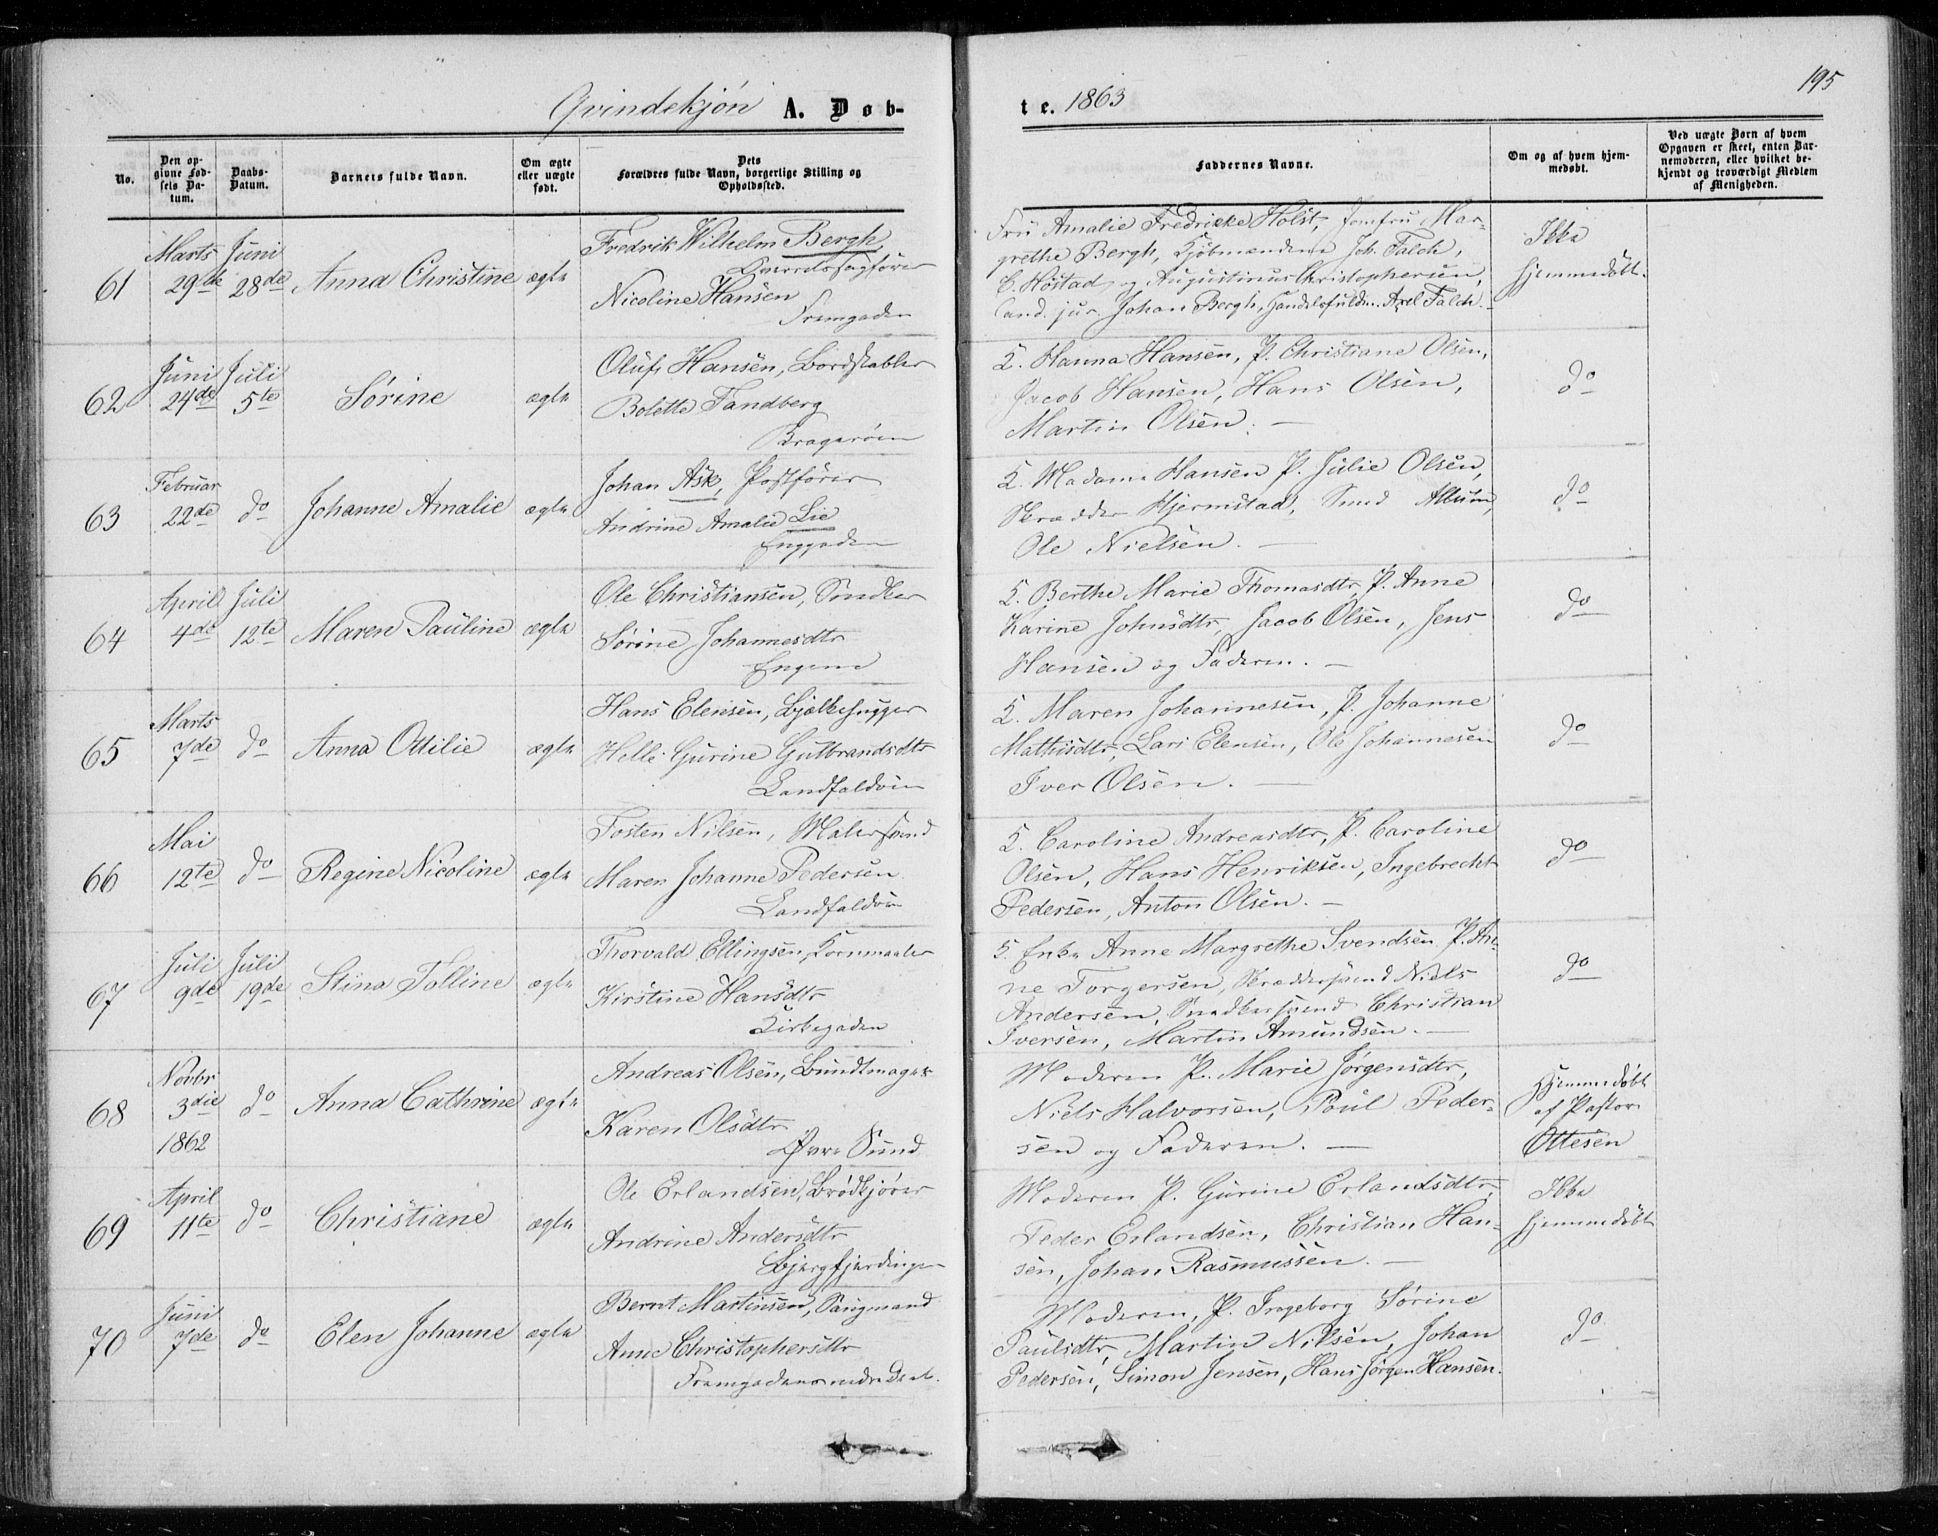 195
Qvindekjøn A. Døb-
te. 1863
No.
Den op-
givne Fød-
sels Da-
tum.
Daabs-
Datum.
Barnets fulde Navn.
Om ægte
eller uægte
født.
Dets
Forældres fulde Navn, borgerlige Stilling og
Opholdssted.
Faddernes Navne.
Om og af hvem hjem-
medøbt.
Ved uægte Børn af hvem
Opgaven er skeet, enten Bar-
nemoderen, eller hvilket be-
kjendt og troværdigt Medlem
af Menigheden.
61
Marts
29de
Juni
28de
Anna Christine
ægte
Fredrik Wilhelm Bergh,
Overretssagfører
Nicoline Hansen
Strømgaden
Fru Amalie Fredrikke Holst, Jomfru Mar-
grethe Bergh, Kjøbmændene Joh. Falch,
C. Høstad og Augustinus Christophersen,
Cand. jur. Johan Bergh, Handelsfuldm. Axel Falch.
Ikke
hjemmedøbt.
62
Juni
24de
Juli
5te
Sørine
ægte
Oluf Hansen, Bordstabler
Bolette Tandberg
Bragerøen
K. Hanna Hansen, P. Christiane Olsen,
Jacob Hansen, Hans Olsen,
Martin Olsen. —
do
63
Februar
22de
do
Johanne Amalie
ægte
Johan Ask, Postfører
Andrine Amalie Lie
Enggaden
K. Madame Hansen P. Julie Olsen,
Skrædder Hjermstad, Smed Allum,
Ole Nielsen. —
do
64
April
4de
Juli
12te
Maren Pauline
ægte
Ole Christiansen, Snedker
Sørine Johannesdtr
Engene
K. Berthe Marie Thomasdtr, P. Anne
Karine Johnsdtr, Jacob Olsen, Jens
Hansen og Faderen. —
do
65
Marts
7de
do
Anna Ottilie
ægte
Hans Elensen, Bjælkehugger
Helle Gurine Gulbrandsdtr
Landfaldøen
K. Maren Johannesen, P. Johanne
Mathisdtr, Lars Elensen, Ole Johannesen
Iver Olsen. —
do
66
Mai
12te
do
Regine Nicoline
ægte
Tosten Nilsen, Malersvend
Maren Johanne Pedersen
Landfaldøen
K. Caroline Andreasdtr, P. Caroline
Olsen, Hans Henriksen, Ingebrecht
Pedersen, Anton Olsen. —
do
67
Juli
9de
Juli
19de
Stina Tolline
ægte
Thorvald Ellingsen, Kornmaaler
Kirstine Hansdtr
Kirkegaden
K. Enke Anne Margrethe Svendsen, P. An-
ne Torgersen, Skræddersvend Niels
Andersen, Snedkersvend Christian
Iversen, Martin Amundsen. —
do
68
Novbr
3die
1862
do
Anna Cathrine
ægte
Andreas Olsen, Bundtmager
Karen Olsdtr
Øvre Sund
Moderen P. Marie Jørgensdtr,
Niels Halvorsen, Poul Peder-
sen og Faderen. —
Hjemmedøbt
af Pastor
Ottesen
69
April
11te
do
Christiane
ægte
Ole Erlandsen, Brødkjører
Andrine Andersdtr
Bjergfjerdingen
Moderen P. Gurine Erlandsdtr,
Peder Erlandsen, Christian Han-
sen, Johan Rasmussen. —
Ikke
hjemmedøbt
70
Juni
7de
do
Elen Johanne
ægte
Bernt Martinsen, Saugmand
Anne Christophersdtr
Strømgadens nedre Deel.
Moderen, P. Ingeborg Sørine
Paulsdtr, Martin Nilsen, Johan
Pedersen, Simon Jensen, Hans Jørgen Hansen.
do